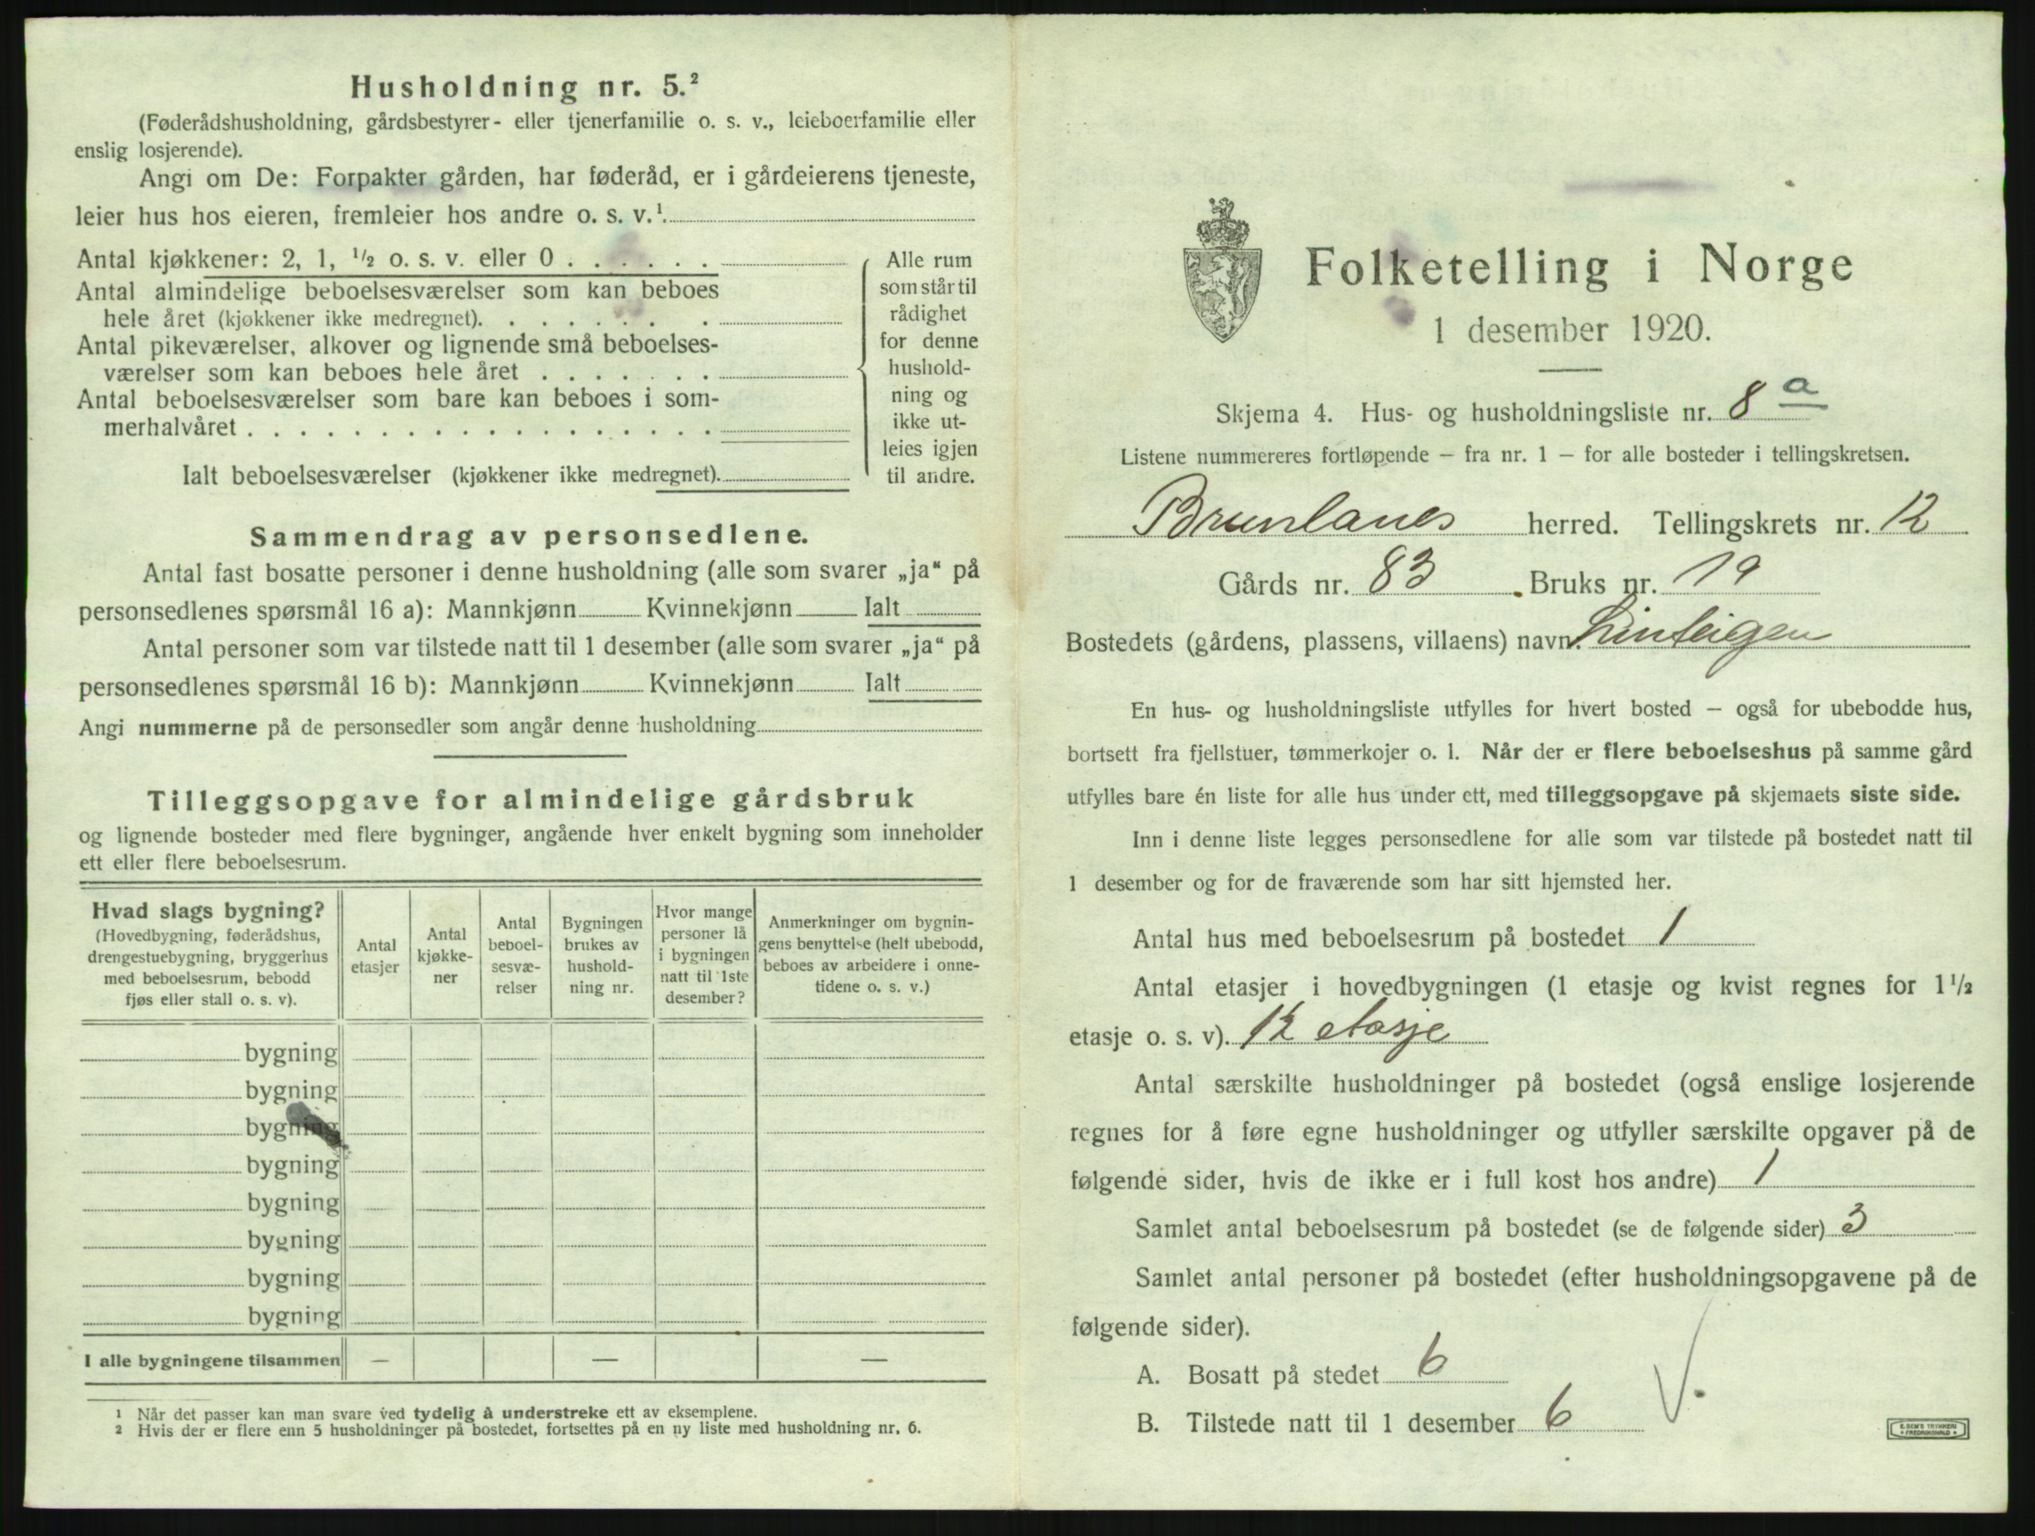 Husholdning nr. 5.²
(Føderådshusholdning, gårdsbestyrer- eller tjenerfamilie o. s. v., leieboerfamilie eller
enslig losjerende).
Angi om De: Forpakter gården, har føderåd, er i gårdeierens tjeneste,
leier hus hos eieren, fremleier hos andre o. s. v.¹.
Antal kjøkkener: 2, 1, ½ o. s. v. eller 0 . . . . . .
Antal almindelige beboelsesværelser som kan beboes
hele året (kjøkkener ikke medregnet). . . . . . . .
Antal pikeværelser, alkover og lignende små beboelses-
værelser som kan beboes hele året . . . . . . .
Antal beboelsesværelser som bare kan beboes i som-
merhalvåret . . . . . . . . . . . . . . . . . .
Ialt beboelsesværelser (kjøkkener ikke medregnet).
Alle rum
som står til
rådighet
for denne
hushold-
ning og
ikke ut-
leies igjen
til andre.
Sammendrag av personsedlene.
Antal fast bosatte personer i denne husholdning (alle som svarer „ja“ på
personsedlenes spørsmål 16 a): Mannkjønn Kvinnekjønn Ialt
Antal personer som var tilstede natt til 1 desember (alle som svarer „ja“ på
personsedlenes spørsmål 16 b): Mannkjønn Kvinnekjønn Ialt
Angi nummerne på de personsedler som angår denne husholdning
Tilleggsopgave for almindelige gårdsbruk
og lignende bosteder med flere bygninger, angående hver enkelt bygning som inneholder
ett eller flere beboelsesrum.
Hvad slags bygning?
(Hovedbygning, føderådshus,
drengestuebygning, bryggerhus
med beboelsesrum, bebodd
fjøs eller stall o. s. v).
Antal
etasjer
Antal
kjøkke-
ner
Antal
beboel-
sesvæ-
relser
Bygningen
brukes av
hushold-
ning nr.
Hvor mange
personer lå
i bygningen
natt til 1ste
desember?
Anmerkninger om bygnin-
gens benyttelse (helt ubebodd,
beboes av arbeidere i onne-
tidene o. s. v.)
bygning
bygning
bygning
bygning
bygning
bygning
bygning
bygning
I alle bygningene tilsammen — — —
¹ Når det passer kan man svare ved tydelig å understreke ett av eksemplene.
² Hvis der er flere enn 5 husholdninger på bostedet, fortsettes på en ny liste med husholdning nr. 6.
Folketelling i Norge
1 desember 1920.
Skjema 4. Hus- og husholdningsliste nr. 8 a
Listene nummereres fortløpende — fra nr. 1 — for alle bosteder i tellingskretsen.
Brunlanes herred. Tellingskrets nr. 12
Gårds nr. 83 Bruks nr. 19
Bostedets (gårdens, plassens, villaens) navn. Linteigen
En hus- og husholdningsliste utfylles for hvert bosted — også for ubebodde hus,
bortsett fra fjellstuer, tømmerkojer o. l. Når der er flere beboelseshus på samme gård
utfylles bare én liste for alle hus under ett, med tilleggsopgave på skjemaets siste side.
Inn i denne liste legges personsedlene for alle som var tilstede på bostedet natt til
1 desember og for de fraværende som har sitt hjemsted her.
Antal hus med beboelsesrum på bostedet 1
Antal etasjer i hovedbygningen (1 etasje og kvist regnes for 1½
etasje o. s. v). 1½ etasje
Antal særskilte husholdninger på bostedet (også enslige losjerende
regnes for å føre egne husholdninger og utfyller særskilte opgaver på de
følgende sider, hvis de ikke er i full kost hos andre) 1
Samlet antal beboelsesrum på bostedet (se de følgende sider) 3
Samlet antal personer på bostedet (efter husholdningsopgavene på de
følgende sider).
A. Bosatt på stedet 6
B. Tilstede natt til 1 desember 6
V.
E. SEM'S TRYKKERI
FREDRIKSHALD